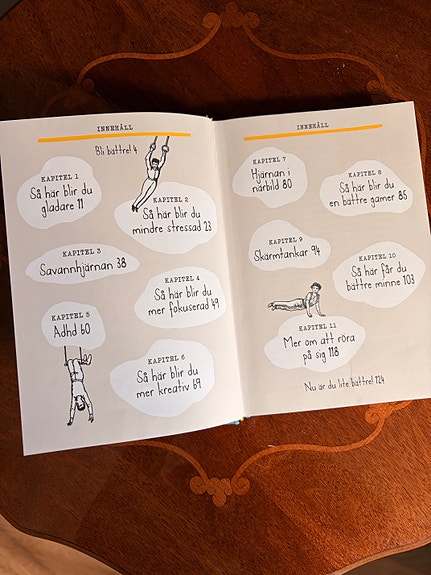 INNEHÅLL
Bli bättre! 4
KAPITEL 1
Så här blir du
gladare 11
KAPITEL 2
Så här blir du
mindre stressad 23
KAPITEL 3
Savannhjärnan 38
KAPITEL 4
Så här blir du
mer fokuserad 49
KAPITEL 5
Adhd 60
KAPITEL 6
Så här blir du
mer kreativ 69
INNEHÅLL
KAPITEL 7
Hjärnan i
närbild 80
KAPITEL 8
Så här blir du
en bättre gamer 85
KAPITEL 9
Skärmtankar 94
KAPITEL 10
Så här får du
bättre minne 103
KAPITEL 11
Mer om att röra
på sig 118
Nu är du lite bättre! 124